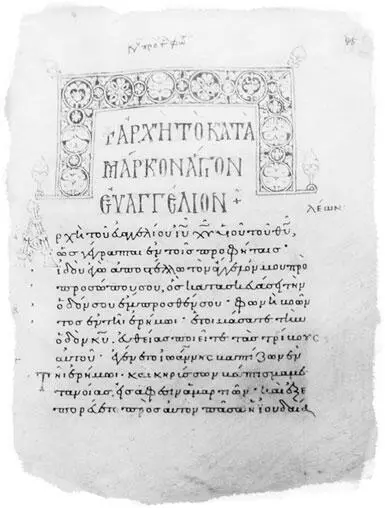 ΑΡΧΗ ΤΟ ΚΑΤΑ
ΜΑΡΚΟΝ ΑΓΙΟΝ
ΕΥΑΓΓΕΛΙΟΝ +
ΛΕΩΝ
ρχὴ τοῦ ἐυαγγελίου ἰυ χυ υἱοῦ τοῦ θυ,
ὡς γέγραπται ἐν τοῖς προφήταις·
ἰδοὺ ἐγὼ ἀποστέλλω τὸν ἄγγελόν μου πρὸ
προσώπου σου, ὃς κατασκευάσει τὴν
ὁδόν σου ἔμπροσθέν σου· φωνὴ βοῶν
τος ἐν τῇ ἐρήμωι· ἑτοιμάσατε τὴν
ὁδὸν κυ, εὐθείας ποιεῖτε τὰς τρίβους
αὐτοῦ· ἐγένετο ἰωάννης βαπτίζων ἐν
τῆι ἐρήμωι· καὶ κηρύσσων βάπτισμα με
τανοίας, εἰς ἄφεσιν ἁμαρτιῶν· καὶ ἐξε
πορεύετο πρὸς αὐτὸν πᾶσα ἡ ἰουδαία